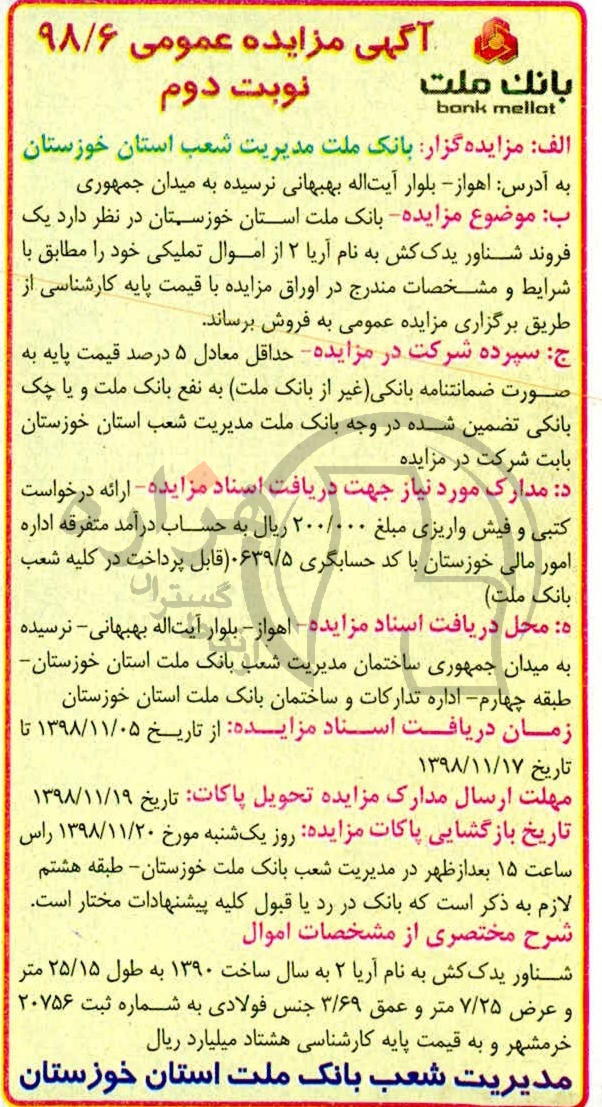 آگهی مزایده عمومی ۹۸/۶
نوبت دوم
بانک ملت
bank mellat
الف: مزایده‌گزار: بانک ملت مدیریت شعب استان خوزستان
به آدرس: اهواز- بلوار آیت‌اله بهبهانی نرسیده به میدان جمهوری
ب: موضوع مزایده- بانک ملت استان خوزستان در نظر دارد یک
فروند شناور یدک‌کش به نام آریا ۲ از اموال تملیکی خود را مطابق با
شرایط و مشخصات مندرج در اوراق مزایده با قیمت پایه کارشناسی از
طریق برگزاری مزایده عمومی به فروش برساند.
ج: سپرده شرکت در مزایده- حداقل معادل ۵ درصد قیمت پایه به
صورت ضمانتنامه بانکی(غیر از بانک ملت) به نفع بانک ملت و یا چک
بانکی تضمین شده در وجه بانک ملت مدیریت شعب استان خوزستان
بابت شرکت در مزایده
د: مدارک مورد نیاز جهت دریافت اسناد مزایده- ارائه درخواست
کتبی و فیش واریزی مبلغ ۲۰۰/۰۰۰ ریال به حساب درآمد متفرقه اداره
امور مالی خوزستان با کد حسابگری ۰۶۳۹/۵(قابل پرداخت در کلیه شعب
بانک ملت)
ه: محل دریافت اسناد مزایده- اهواز- بلوار آیت‌اله بهبهانی- نرسیده
به میدان جمهوری ساختمان مدیریت شعب بانک ملت استان خوزستان-
طبقه چهارم- اداره تدارکات و ساختمان بانک ملت استان خوزستان
زمان دریافت اسناد مزایده: از تاریخ ۱۳۹۸/۱۱/۰۵ تا
تاریخ ۱۳۹۸/۱۱/۱۷
مهلت ارسال مدارک مزایده تحویل پاکات: تاریخ ۱۳۹۸/۱۱/۱۹
تاریخ بازگشایی پاکات مزایده: روز یک‌شنبه مورخ ۱۳۹۸/۱۱/۲۰ راس
ساعت ۱۵ بعدازظهر در مدیریت شعب بانک ملت خوزستان- طبقه هشتم
لازم به ذکر است که بانک در رد یا قبول کلیه پیشنهادات مختار است.
شرح مختصری از مشخصات اموال
شناور یدک‌کش به نام آریا ۲ به سال ساخت ۱۳۹۰ به طول ۲۵/۱۵ متر
و عرض ۷/۲۵ متر و عمق ۳/۶۹ جنس فولادی به شماره ثبت ۲۰۷۵۶
خرمشهر و به قیمت پایه کارشناسی هشتاد میلیارد ریال
مدیریت شعب بانک ملت استان خوزستان